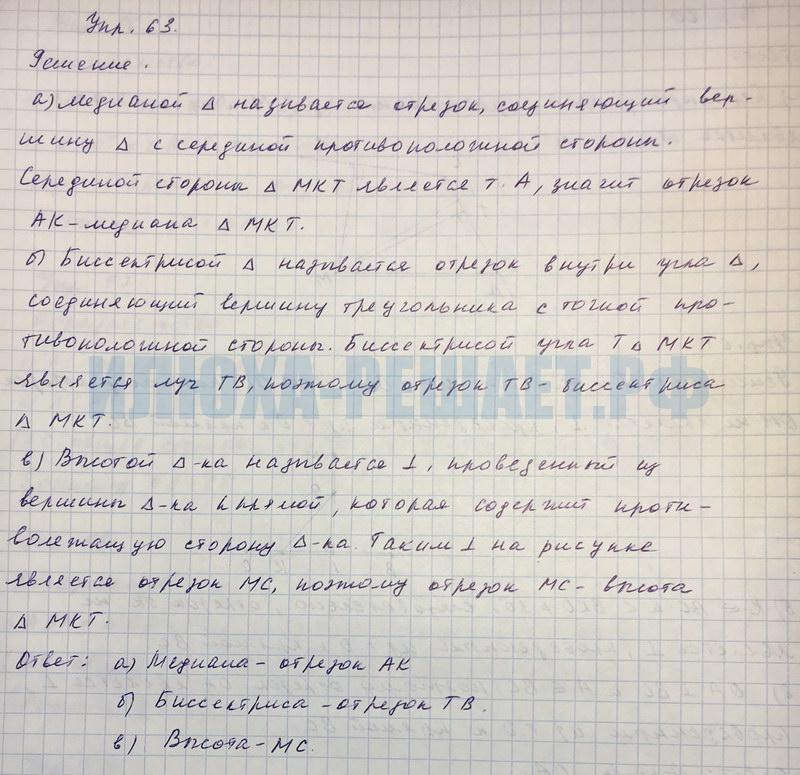 Упр. 63.
Решение.
а) медианой Δ называется отрезок, соединяющий вер-
шину Δ с серединой противоположной стороны.
Серединой стороны Δ МКТ является т. А, значит отрезок
АК-медиана Δ МКТ.
б) Биссектрисой Δ называется отрезок внутри угла Δ,
соединяющий вершину треугольника с точкой про-
тивоположной стороны. Биссектрисой угла Т Δ МКТ
является луч ТВ, поэтому отрезок ТВ- биссектриса
ИЛЮХА-РЕШАЕТ.РФ
Δ МКТ.
в) Высотой Δ-ка называется ⊥, проведенный из
вершины Δ-ка к прямой, которая содержит проти-
волежащую сторону Δ-ка. Таким ⊥ на рисунке
является отрезок МС, поэтому отрезок МС- высота
Δ МКТ.
Ответ: а) Медиана - отрезок АК
б) Биссектриса - отрезок ТВ.
в) Высота - МС.